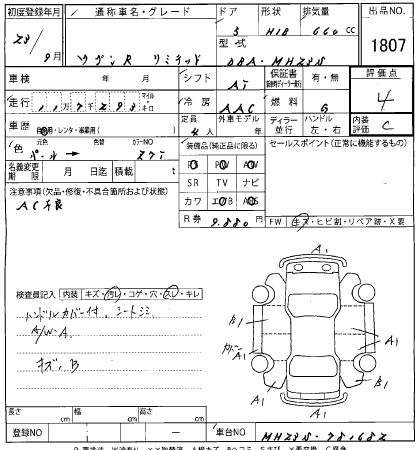 初度登録年月 通称車名・グレード ドア 形状 排気量 出品NO.
23/ 9月 ワゴンR リミテッド 5 H/B 660 CC 1807
型式 DBA-MH23S
車検 年 月 シフト AT 保証書 有・無 評価点 4
走行 117293 マイル キロ 冷房 AAC 燃料 G
車歴 自家用・レンタ・事業用( ) 定員 4人 外車モデル ディーラー 並行 ハンドル 左・右 内装評価 C
色 元色 パール → 色替 カラーNO Z7T 装備品(純正品に限る) セールスポイント(正常に機能するもの)
名義変更期限 月 日迄 積載 t PS PW AW
注意事項(欠品・修復・不具合箇所および状態) SR TV ナビ
AC不良 カワ エアB ABS
R券 9.880 円 FW キズ・ヒビ割・リペア跡・X要
A1
検査員記入 内装 キズ・汚レ・コゲ・穴・スレ・キレ
ハンドルカバー付、シートシミ
B1 A1
A/W-A
A1
キズ、B
A1 B1
A1
長さ cm 幅 cm 高さ cm
登録NO — 車台NO MH23S-784682